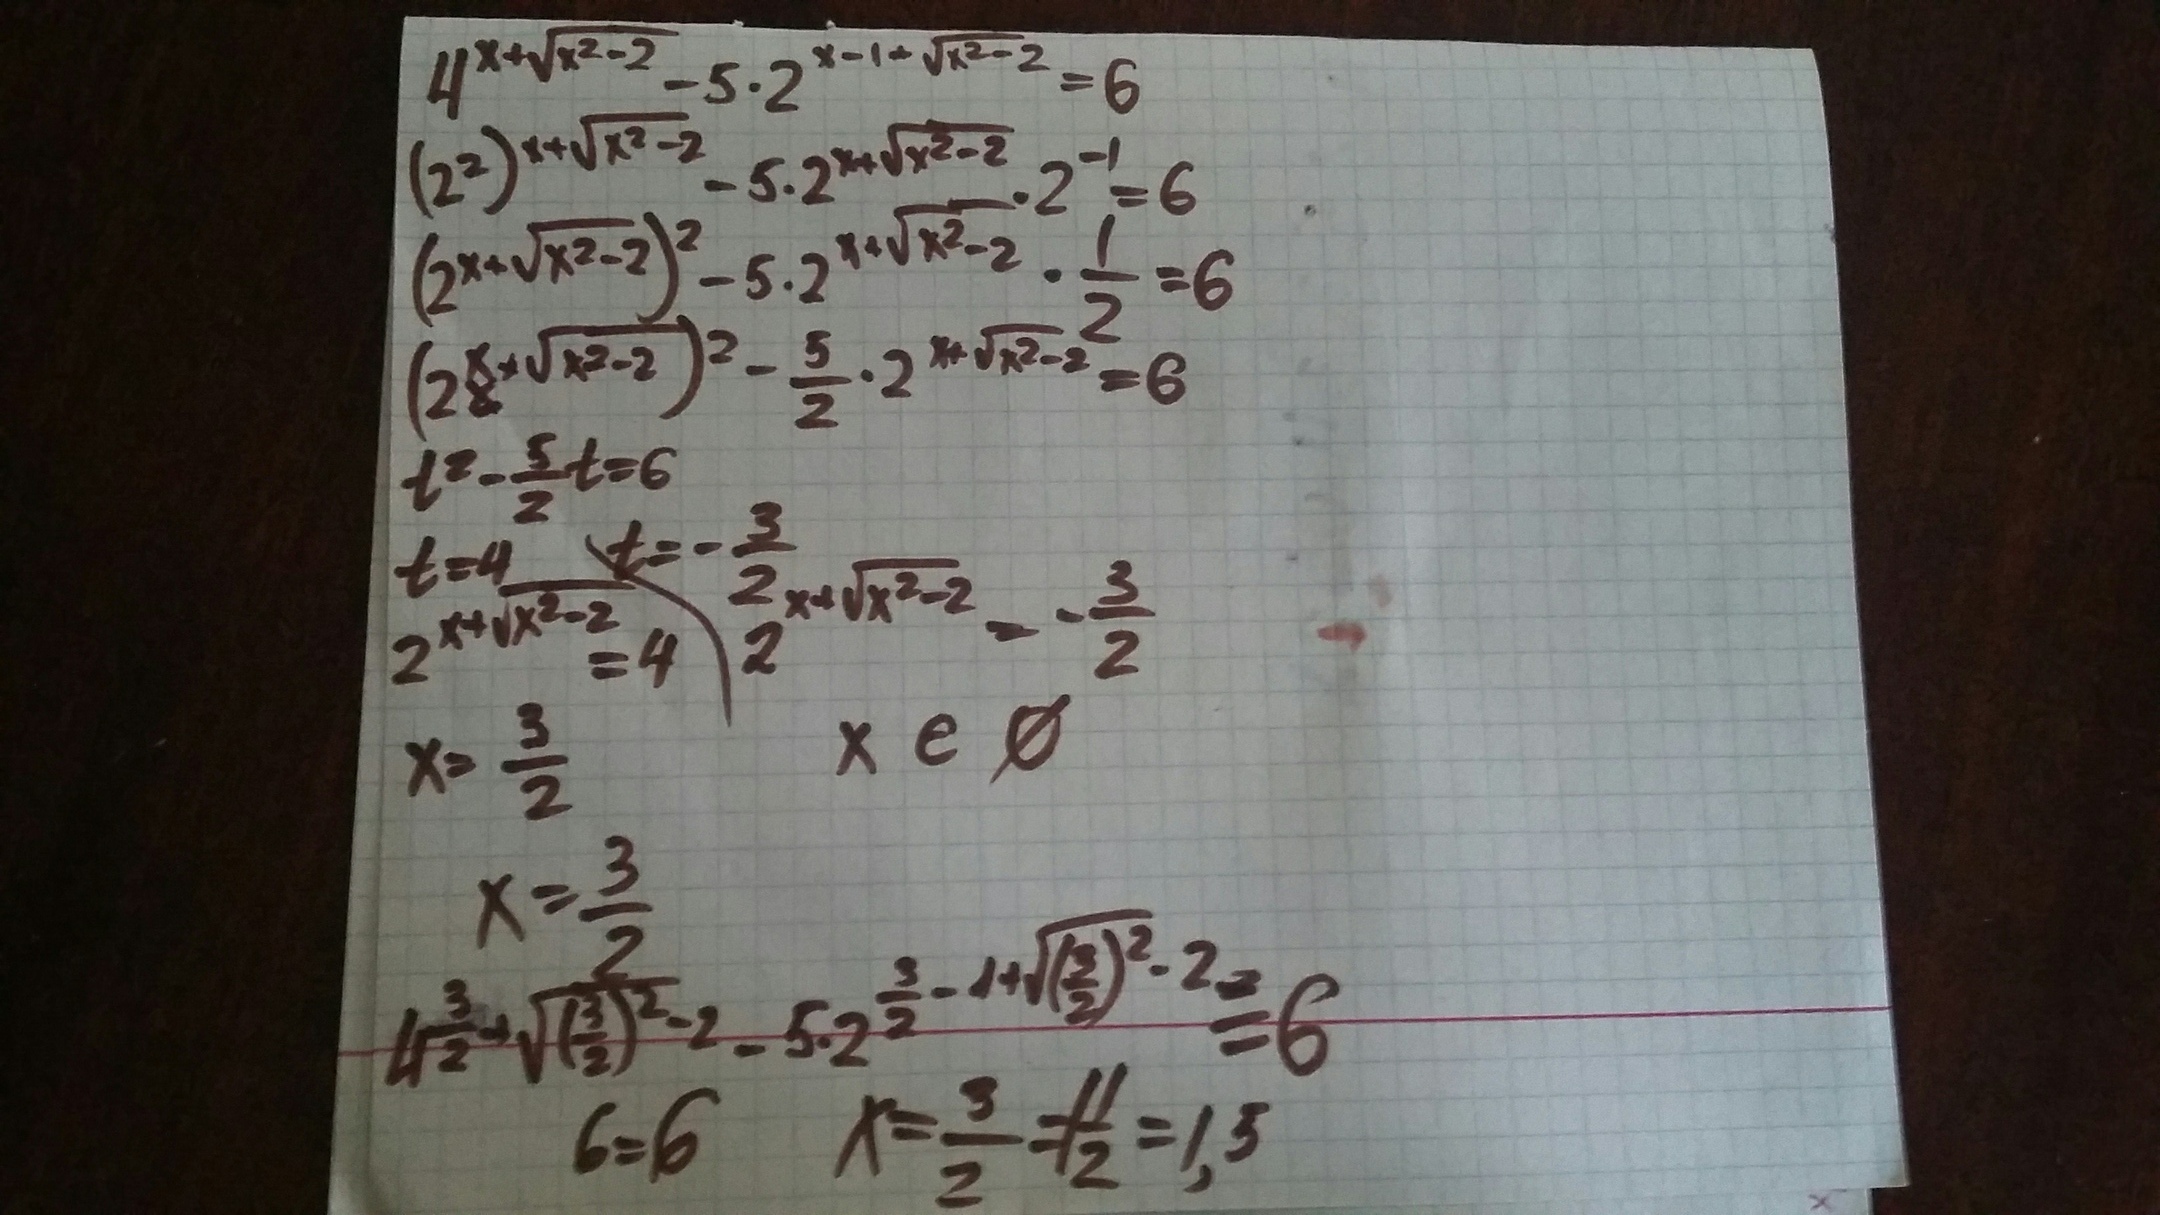 4^(x+√(x²-2)) - 5·2^(x-1+√(x²-2)) = 6
(2²)^(x+√(x²-2)) - 5·2^(x+√(x²-2)) · 2^(-1) = 6
(2^(x+√(x²-2)))² - 5·2^(x+√(x²-2)) · 1/2 = 6
(2^(x+√(x²-2)))² - 5/2 · 2^(x+√(x²-2)) = 6
t² - 5/2 t = 6
t=4 t=-3/2
2^(x+√(x²-2)) = 4 2^(x+√(x²-2)) = -3/2
x = 3/2 x e ∅
x = 3/2
4^(3/2+√((3/2)²-2)) - 5·2^(3/2-1+√((3/2)²-2)) = 6
6=6 x = 3/2 = 1 1/2 = 1,5